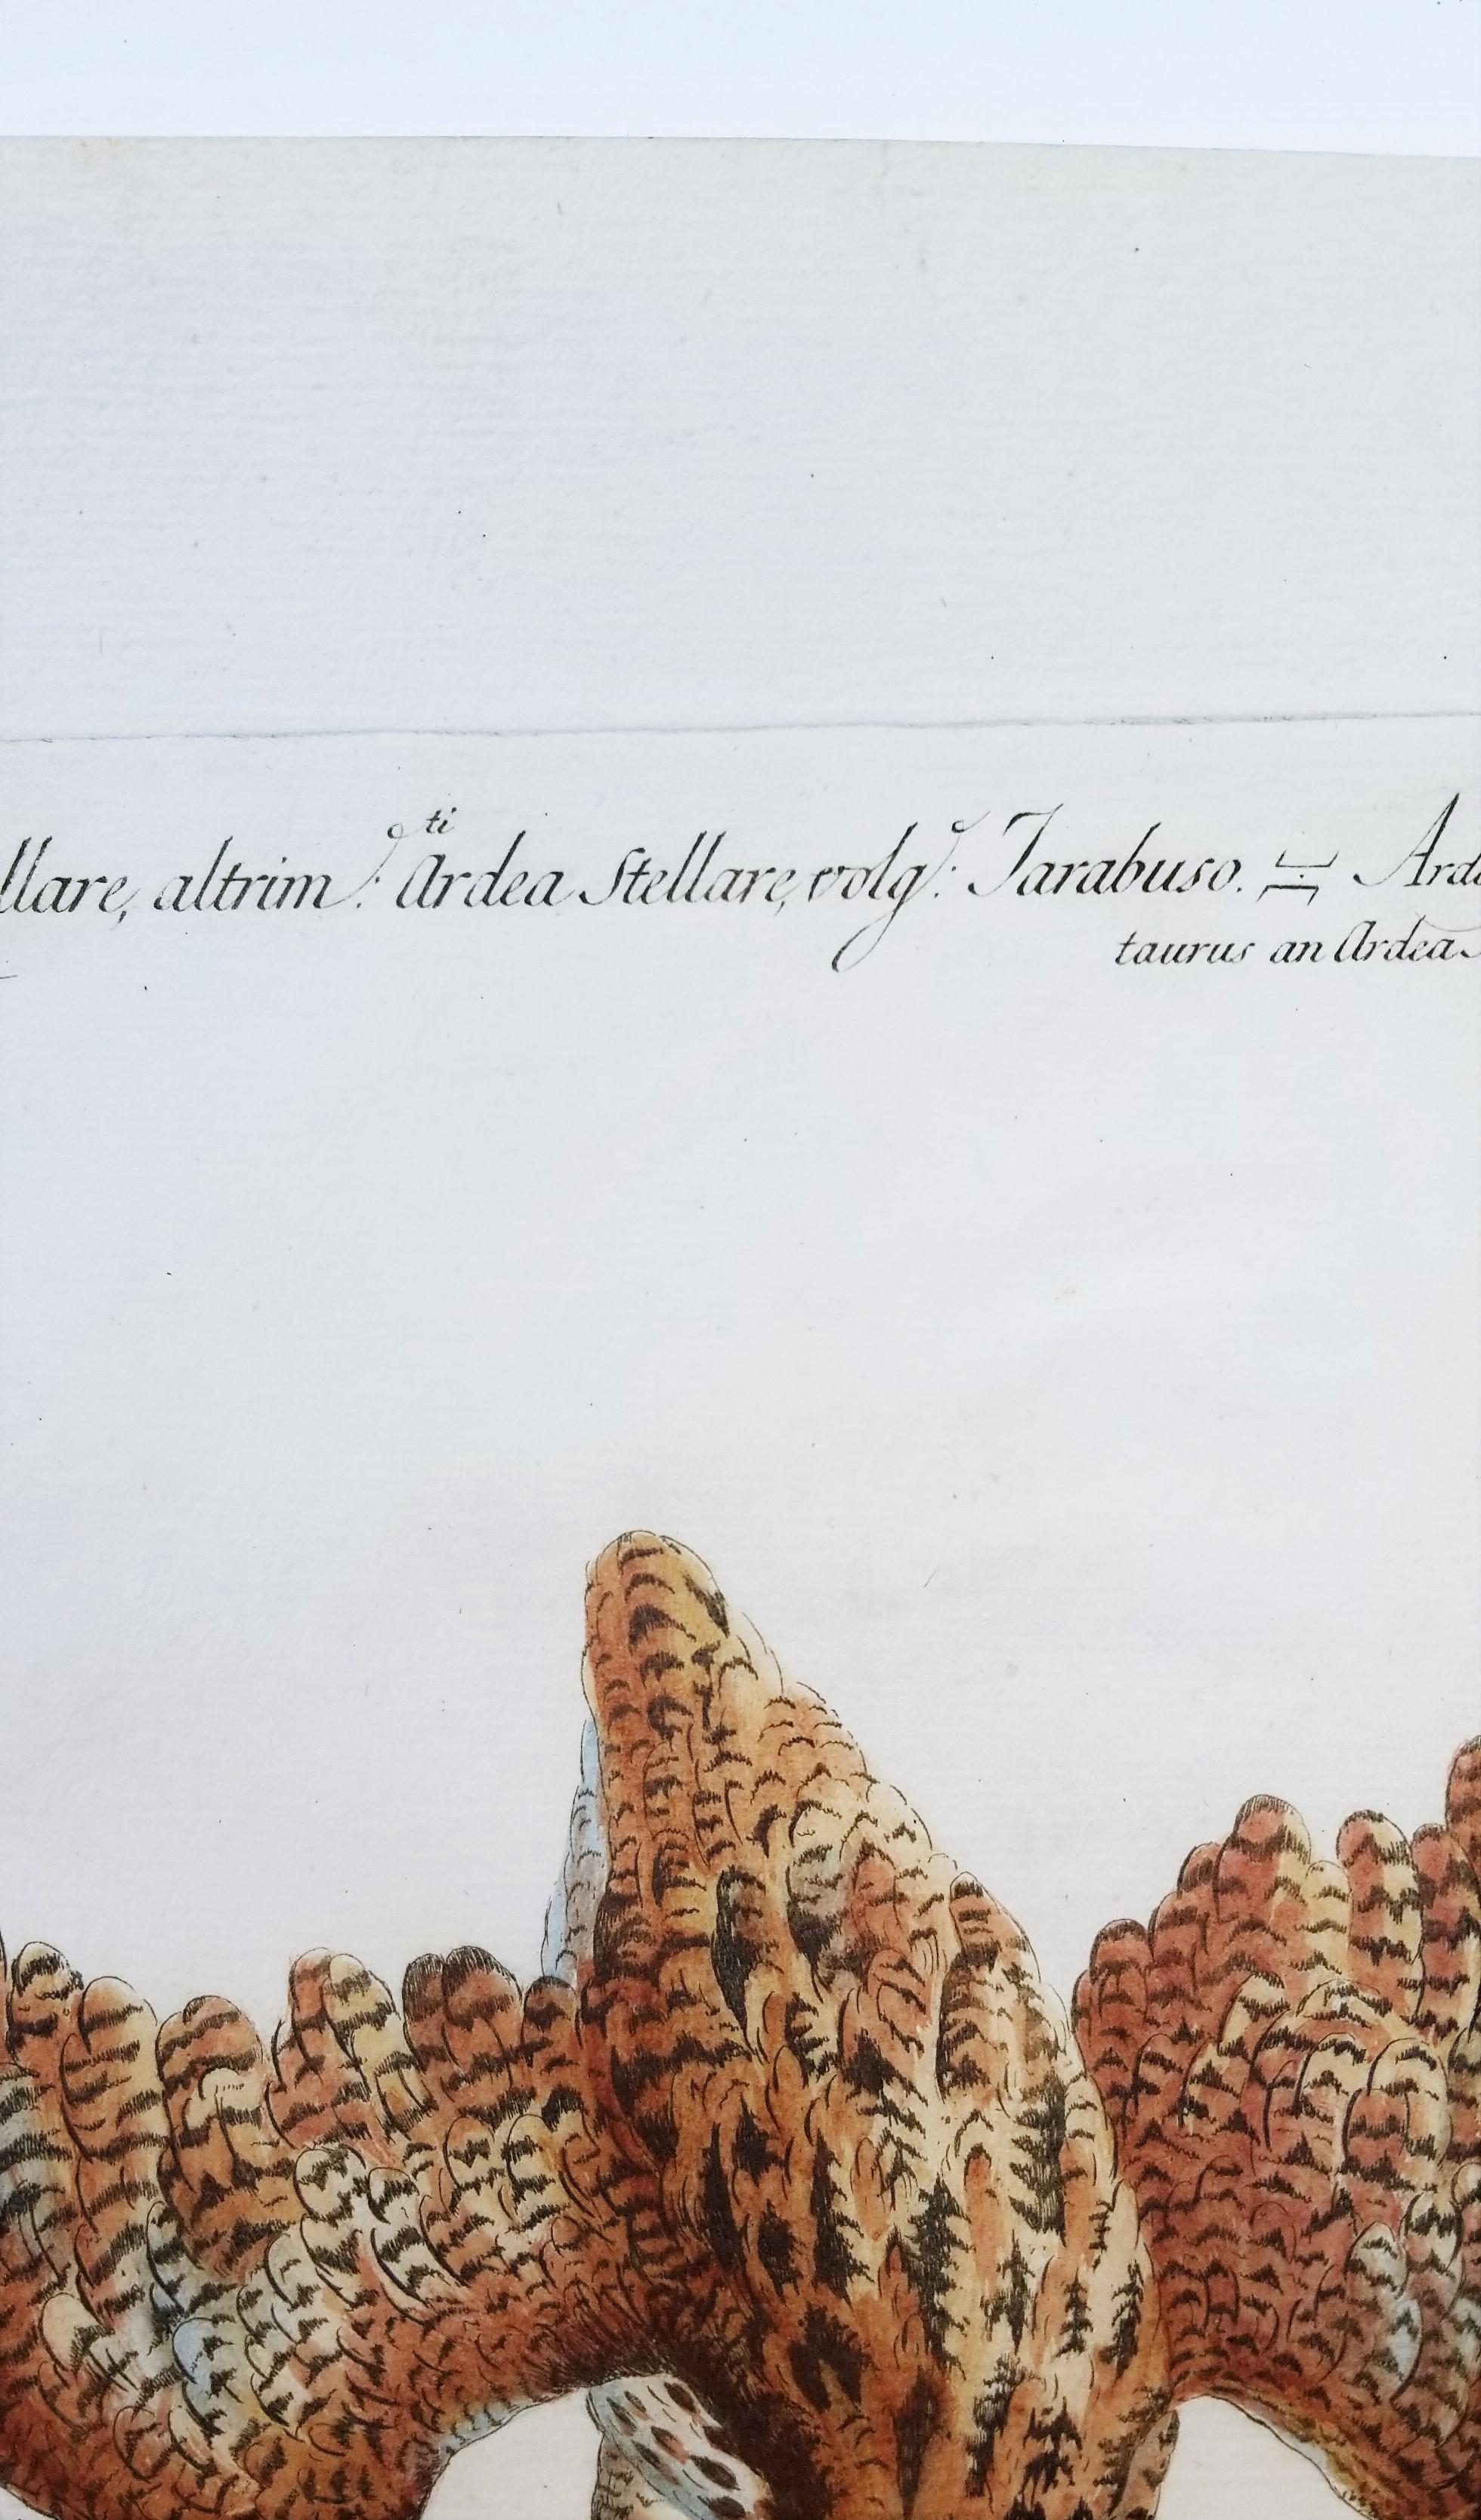 llare, altrim:ti Ardea Stellare, volg: Tarabuso. Arde
taurus an Ardea